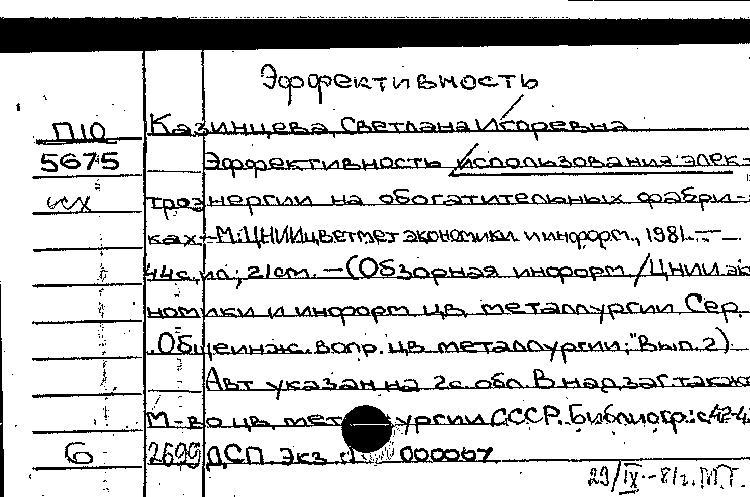 Эффективность
П10 Казинцева, Светлана Игоревна
5675 Эффективность использования элек-
исх троэнергии на обогатительных фабри-
ках.-М.: ЦНИИцветмет экономики и информ., 1981.-
44с. ил.; 21 см. - (Обзорная информ / ЦНИИ эко
номики и информ цв. металлургии Сер.
"Общеинж. вопр. цв металлургии"; Вып. 2)
Авт указан на 2с. обл. В надзаг. также
М-во цв. мет ургии СССР. Библиогр.: с. 42-4
6 2699 ДСП. Экз 000067
29/IX-81г. М.Т.